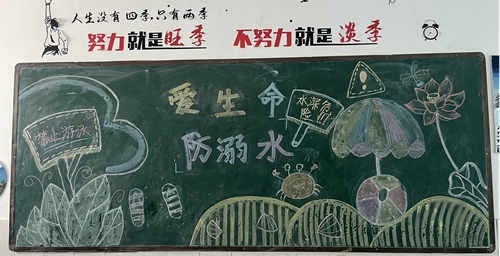 人生没有四季,只有两季
努力就是旺季 不努力就是淡季
爱生命
防溺水
禁止游泳
水深危
险!!!